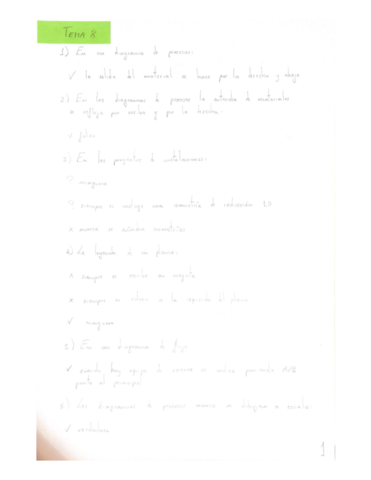 TEMA 8
1) En un diagrama de proceso:
✓ la salida del material se hace por la derecha y abajo
2) En los diagramas de proceso la entrada de materiales
se refleja por arriba y por la derecha:
✓ falso
3) En los proyectos de instalaciones:
ninguna
siempre se incluye una de
x nunca se añaden
4) La leyenda de un plano:
x siempre se escribe en
x siempre se coloca a la del plano
✓ ninguna
5) En un diagrama de flujo
✓ cuando hay equipo de reserva se indica poniendo A/B
junto al principal
6) Los diagramas de proceso nunca se dibujan a escala:
✓ verdadero
1